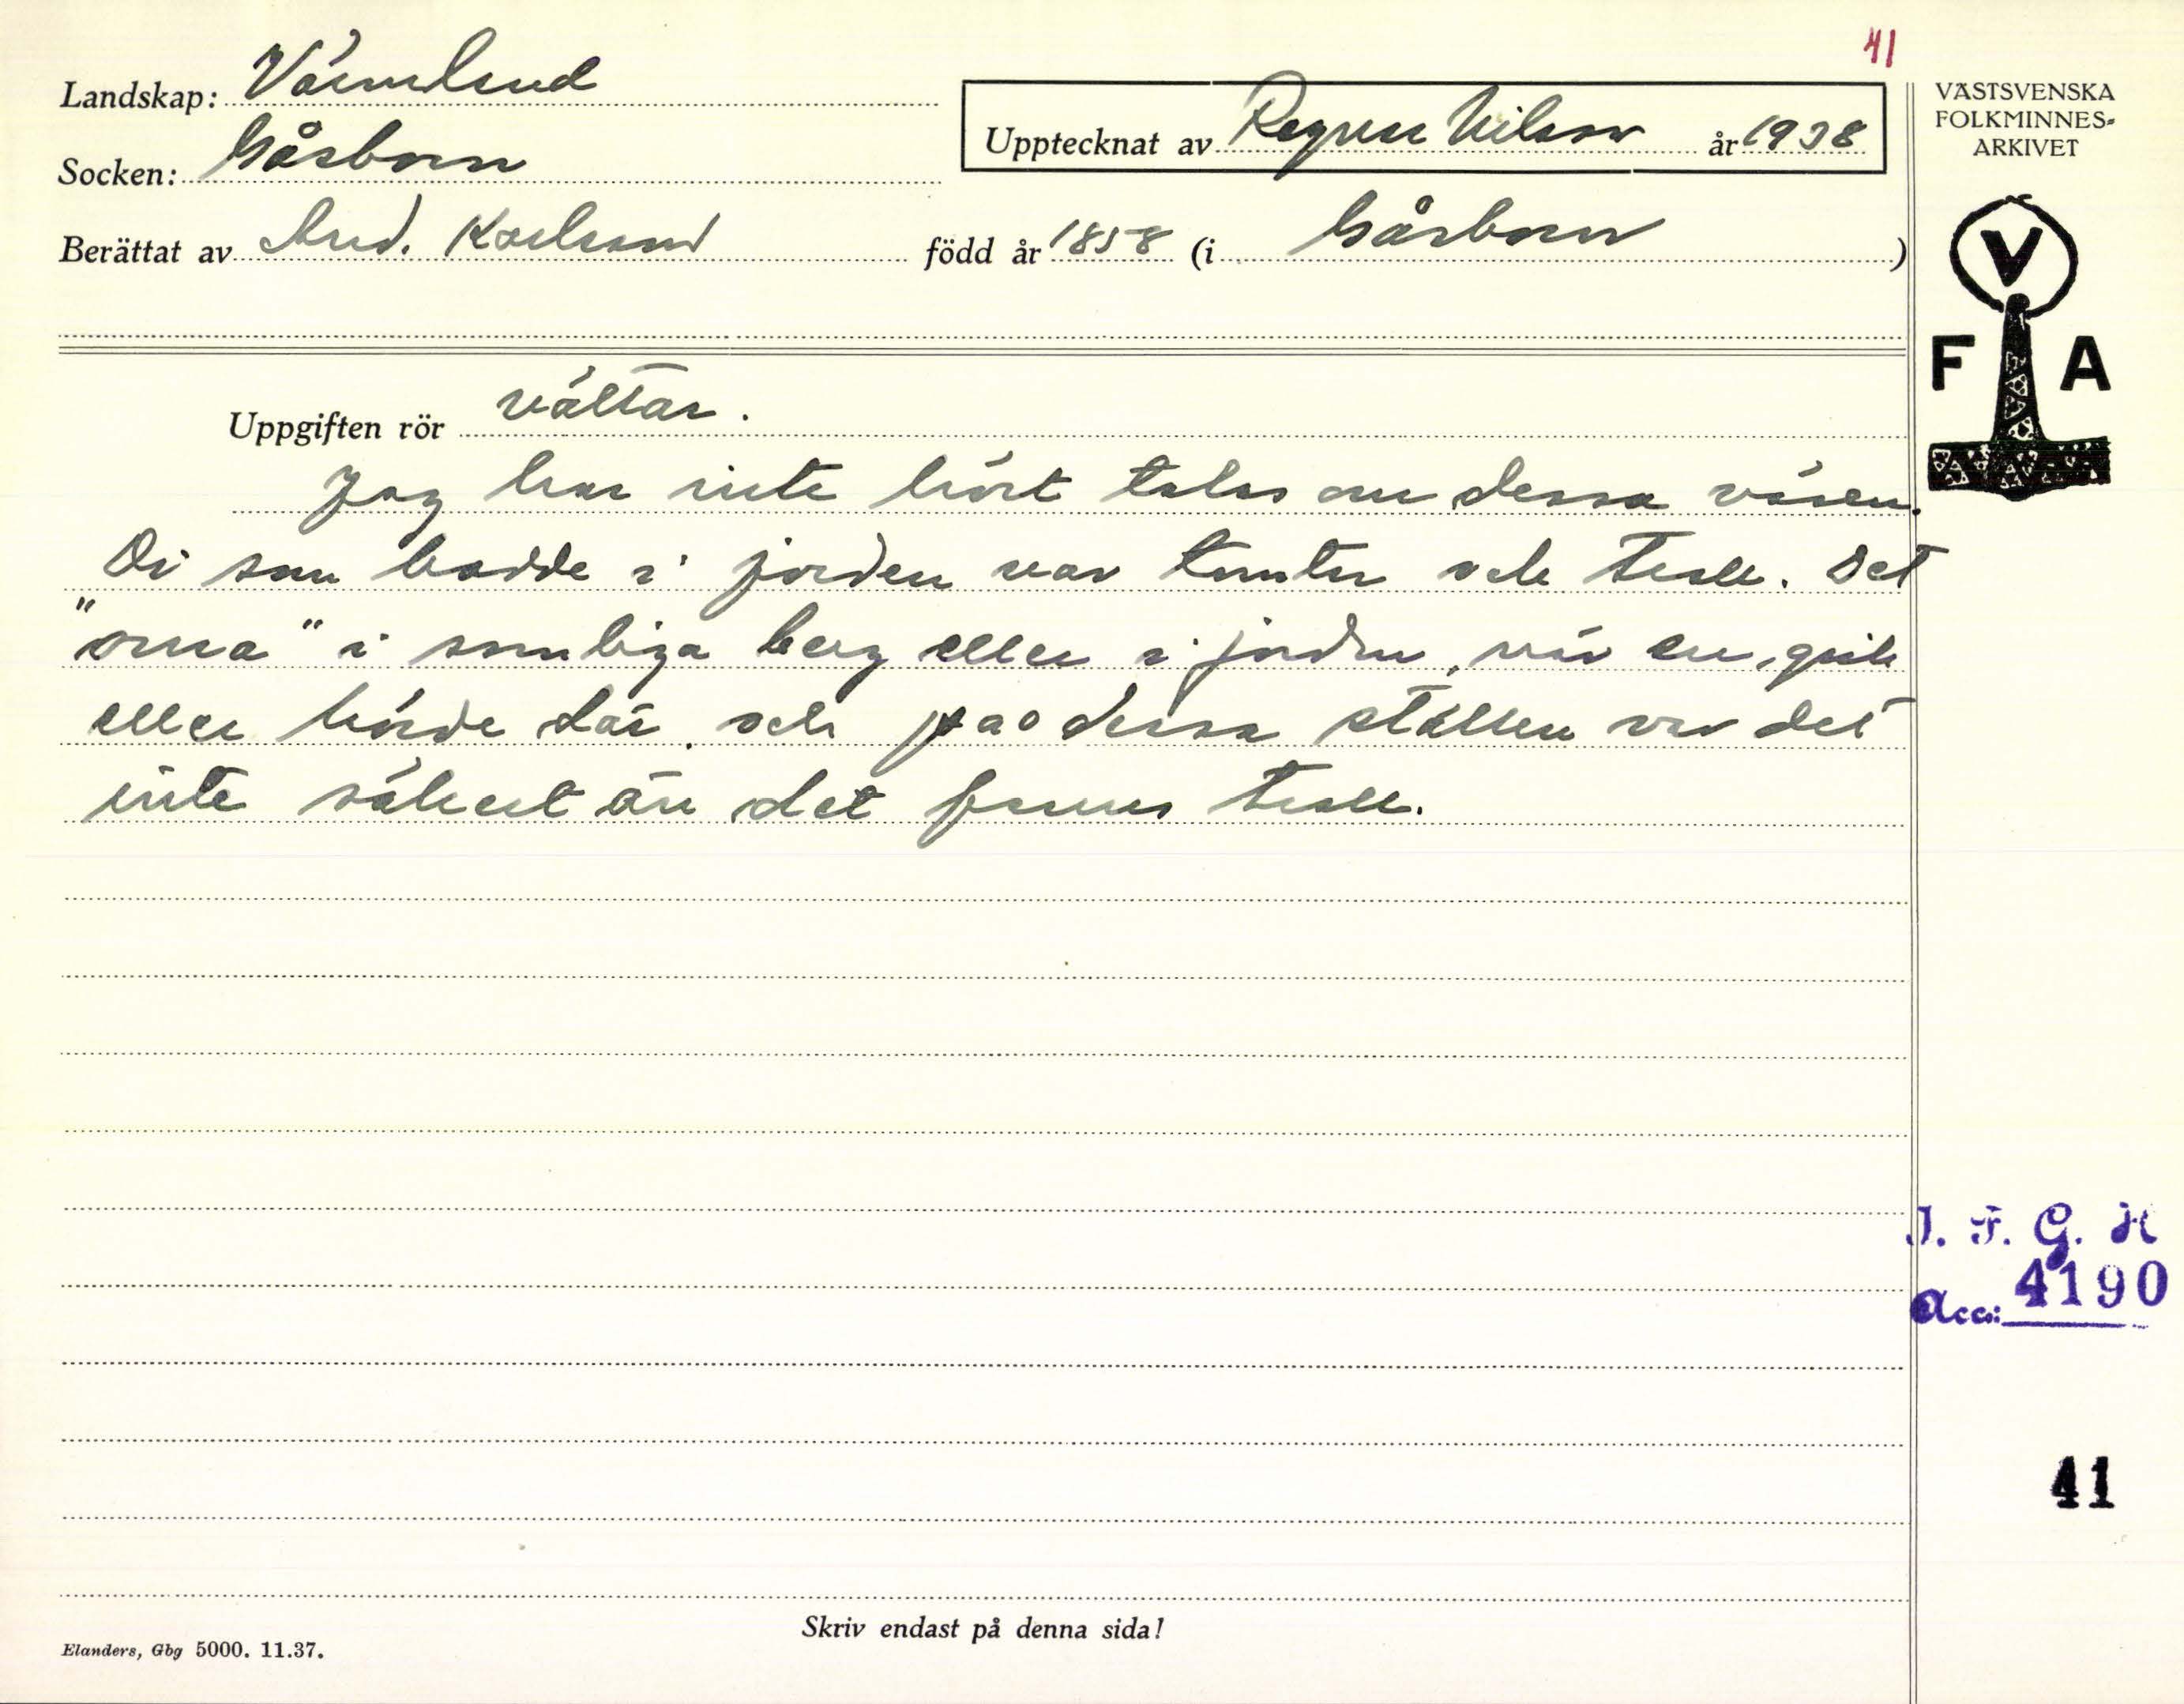 41
Landskap: Värmland
Socken: Gåsborn
Upptecknat av Ragnar Nilsson år 1938
Berättat av And. Karlsson född år 1858 (i Gåsborn)
VÄSTSVENSKA
FOLKMINNES-
ARKIVET
V
F A
Uppgiften rör vättar.
Jag har inte hört talas om dessa väsen.
Di som bodde i jorden var tomtar och troll. Det
"oma" i somliga berg eller i jorden, när en gick
eller körde där och på dessa ställen var det
inte säkert än det fanns troll.
I. F. G. H
Acc: 4190
41
Skriv endast på denna sida!
Elanders, Gbg 5000. 11.37.